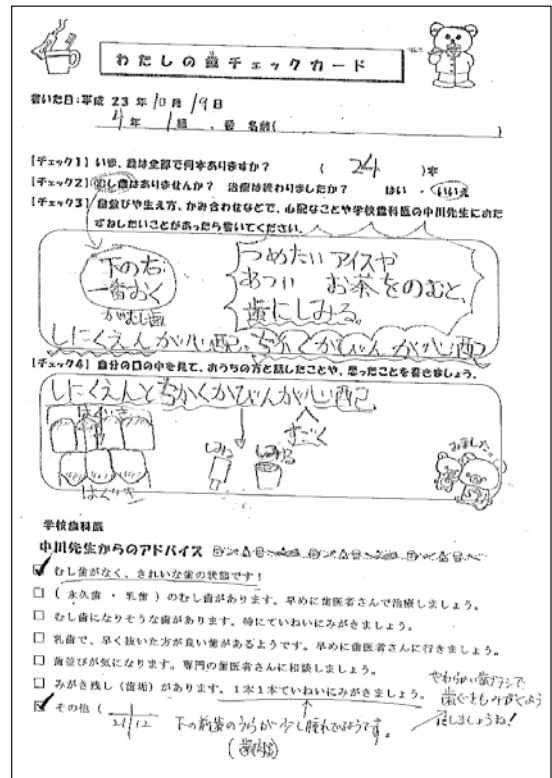 わたしの歯チェックカード
書いた日:平成 23 年 10 月 19 日
4年 1組 . 番 名前( )
【チェック1】いま、歯は全部で何本ありますか? ( 24 )本
【チェック2】むし歯はありませんか? 治療は終わりましたか? はい ・ いいえ
【チェック3】歯並びや生え方、かみ合わせなどで、心配なことや学校歯科医の中川先生におたずねしたいことがあったら書いてください。
下の右
一番おく
がむし歯
つめたい アイスや
あつい お茶をのむと、
歯にしみる。
しにくえんが心配。ちかくかびんが心配
【チェック4】自分の口の中を見て、おうちの方と話したことや、思ったことを書きましょう。
しにくえんとちかくかびんが心配
すごく
はぐき
しみる
しみる
はぐき
みました。
学校歯科医
中川先生からのアドバイス
☑ むし歯がなく、きれいな歯の状態です!
□ ( 永久歯 ・ 乳歯 )のむし歯があります。早めに歯医者さんで治療しましょう。
□ むし歯になりそうな歯があります。特にていねいにみがきましょう。
□ 乳歯で、早く抜いた方が良い歯があるようです。早めに歯医者さんに行きましょう。
□ 歯並びが気になります。専門の歯医者さんに相談しましょう。
□ みがき残し(歯垢)があります。1本1本ていねいにみがきましょう。
やわらかい歯ブラシで
歯ぐきもみがくよう
にしましょうね!
☑ その他( 1
21 12 下の前歯のうらが少し腫れているようです。